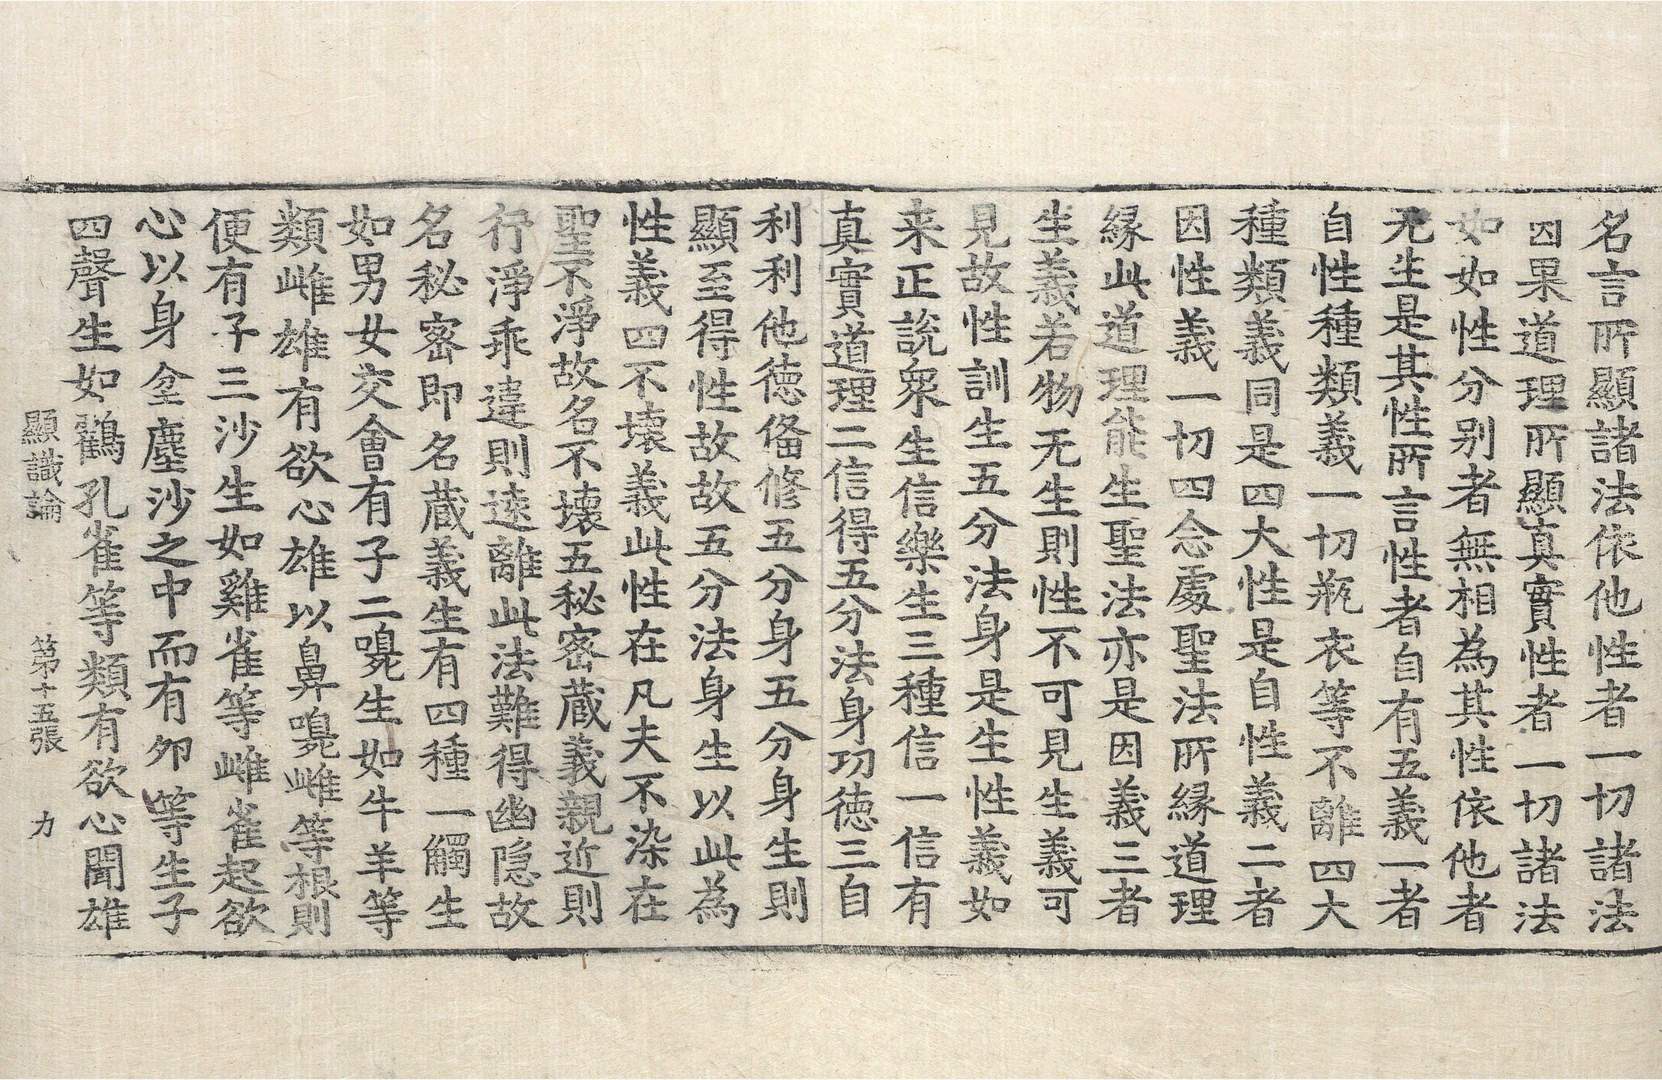 名言所顯諸法依他性者一切諸法
因果道理所顯真實性者一切諸法
如如性分别者無相為其性依他者
无生是其性所言性者自有五義一者
自性種類義一切瓶衣等不離四大
種類義同是四大性是自性義二者
因性義一切四念處聖法所緣道理
緣此道理能生聖法亦是因義三者
生義若物无生則性不可見生義可
見故性訓生五分法身是生性義如
来正說衆生信樂生三種信一信有
真實道理二信得五分法身功德三自
利利他德俻修五分身五分身生則
顯至得性故故五分法身生以此為
性義四不壞義此性在凡夫不染在
聖不淨故名不壞五秘密蔵義親近則
行淨乖違則遠離此法難得幽隐故
名秘密即名蔵義生有四種一觸生
如男女交會有子二嗅生如牛羊等
類雌雄有欲心雄以鼻嗅雌等根則
便有子三沙生如雞雀等雌雀起欲
心以身坌塵沙之中而有夘等生子
四聲生如鸖孔雀等類有欲心聞雄
顯識論 第十五張 力